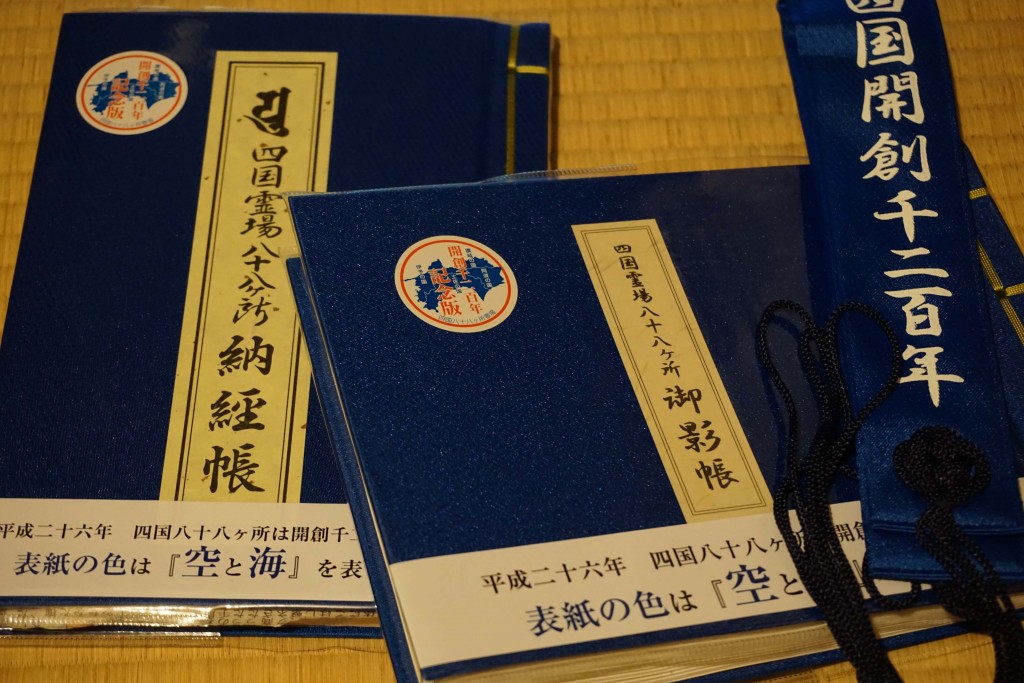 開創千二百年
記念版
四国霊場八十八ヶ所
納経帳
平成二十六年 四国八十八ヶ所は開創千
表紙の色は『空と海』を表
開創千二百年
記念版
四国八十八ヶ所霊場
四国霊場八十八ヶ所
御影帳
平成二十六年 四国八十八ヶ所は開創
表紙の色は『空と
四国開創千二百年